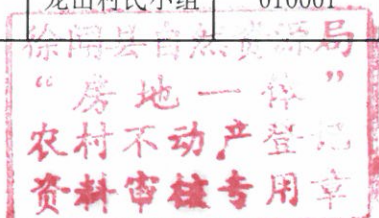 龙山村民小组 010001
徐闻县自然资源局
“房地一体”
农村不动产登记
资料审核专用章